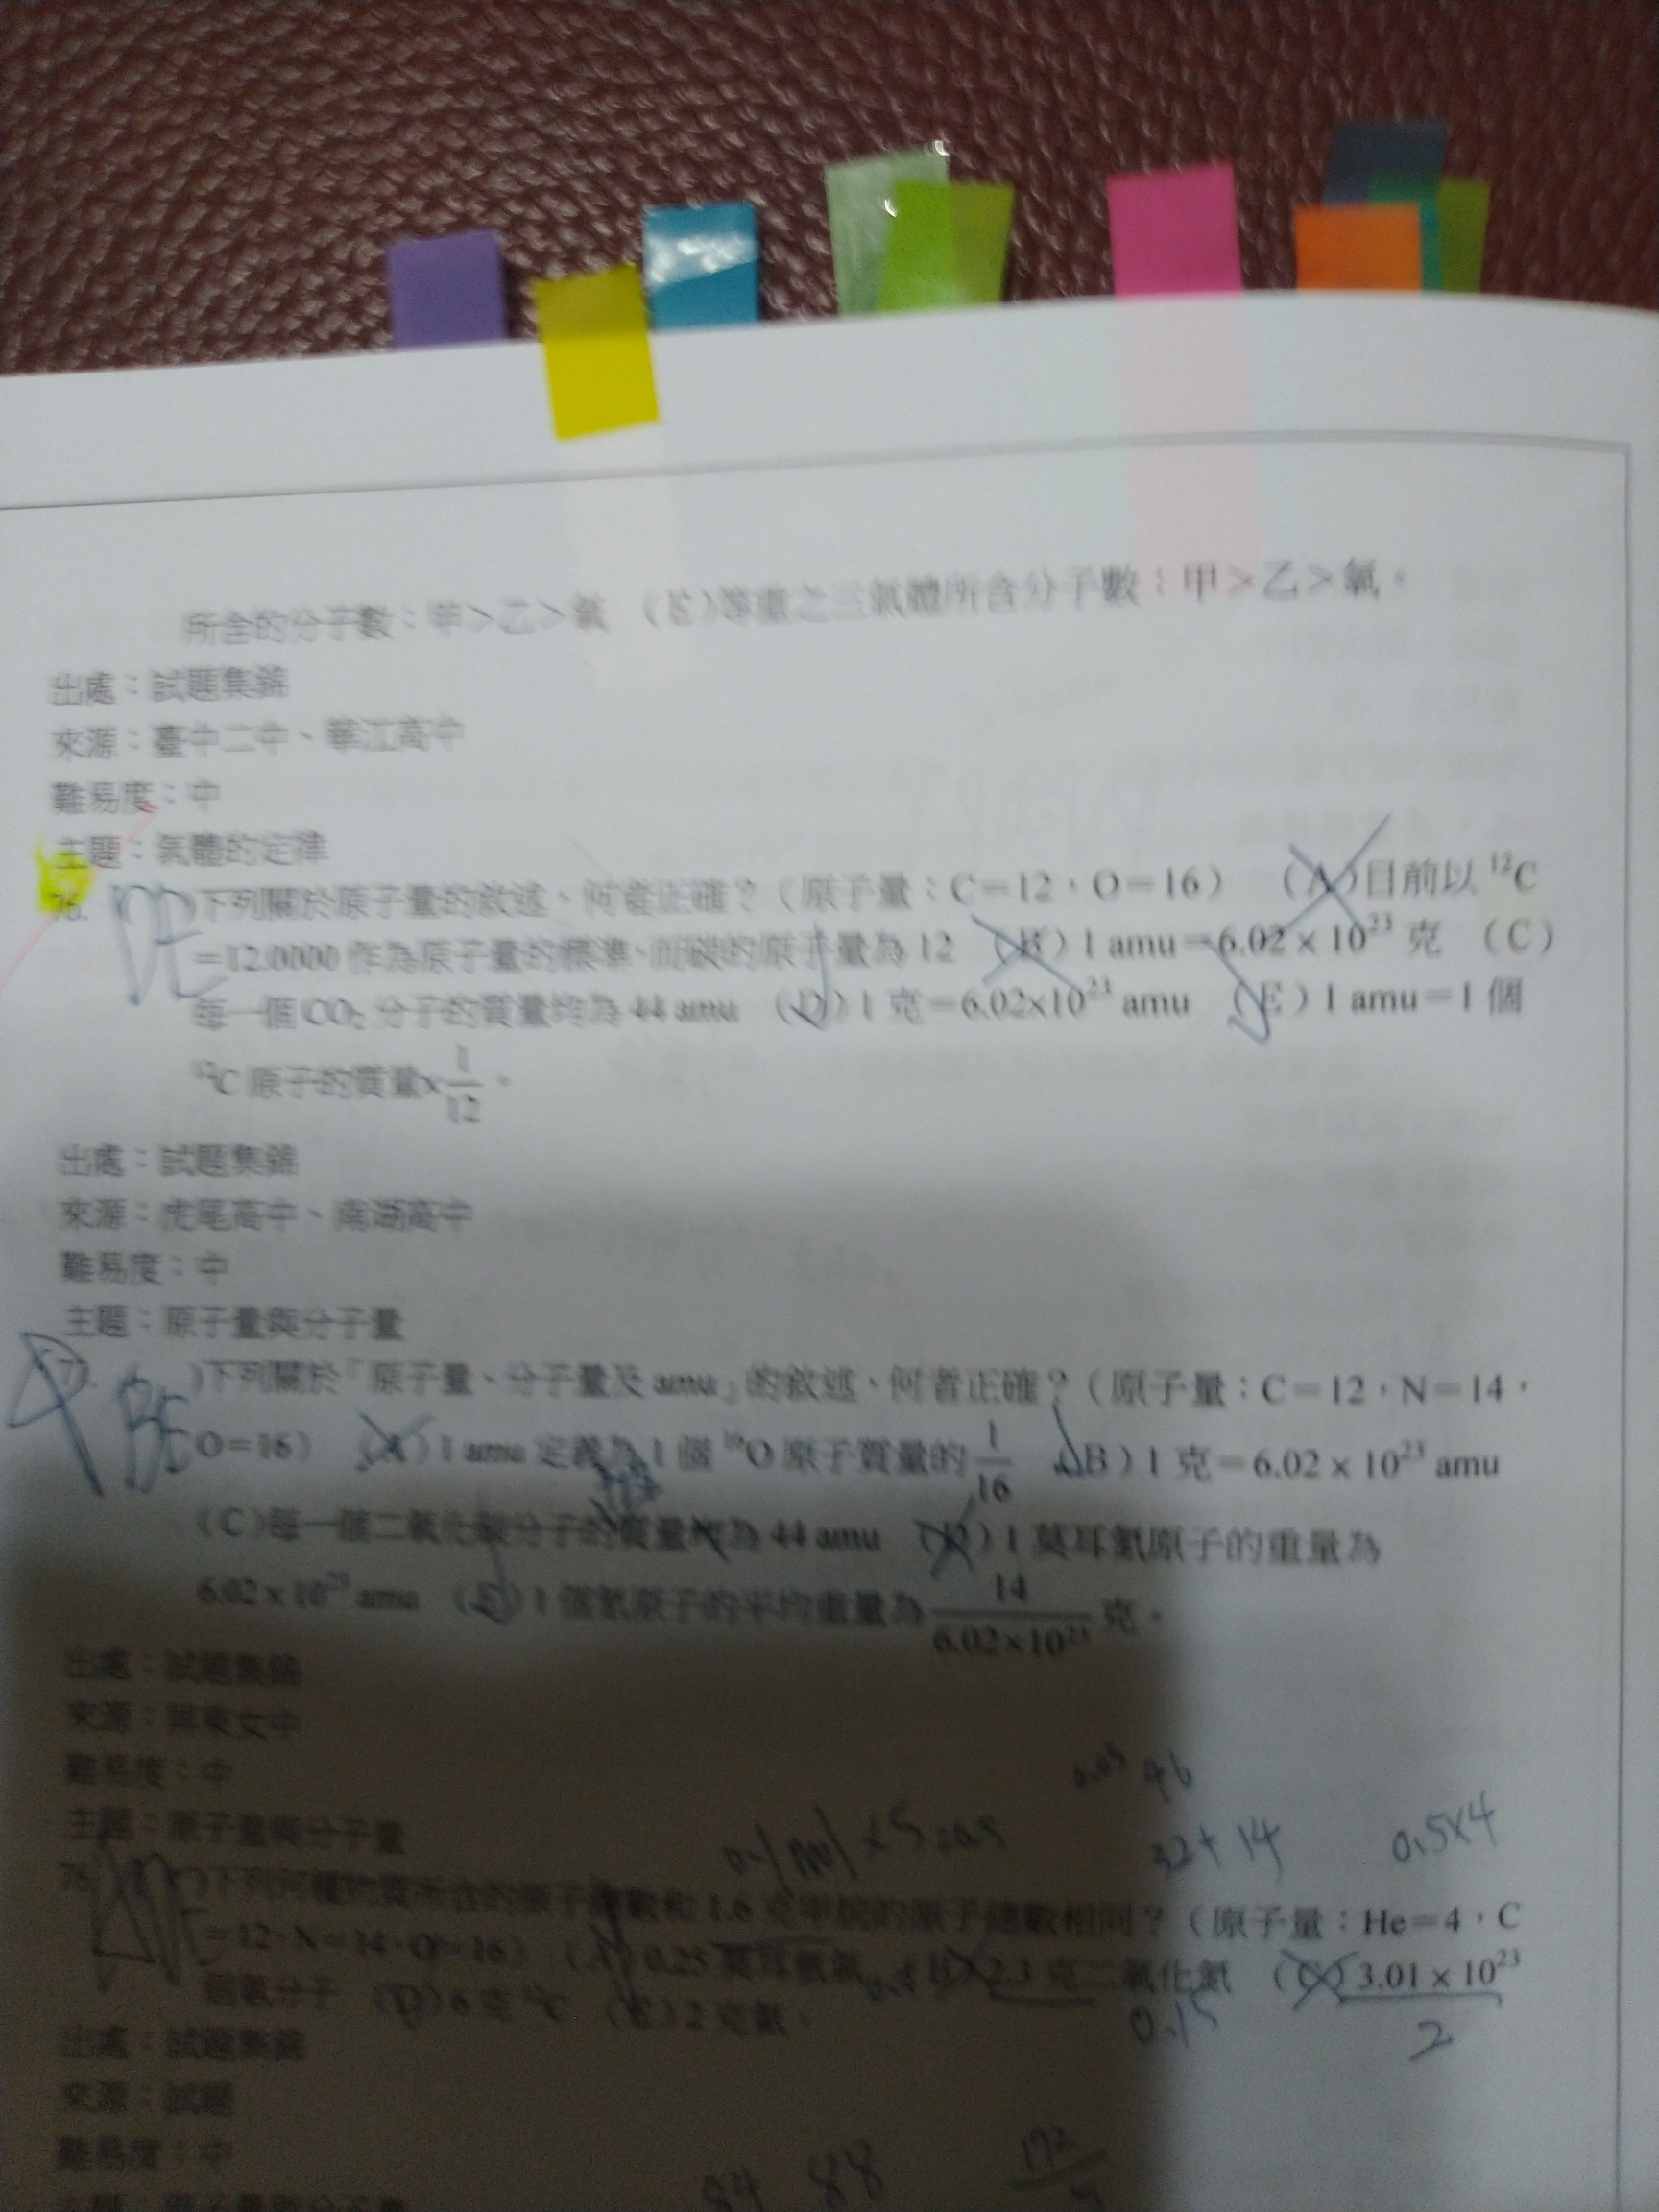 所含的分子數：甲＞乙＞氧 (E)等重之三氣體所含分子數：甲＞乙＞氧。
出處：試題集錦
來源：臺中二中、華江高中
難易度：中
主題：氣體的定律
76. DE )下列關於原子量的敘述，何者正確？（原子量：C＝12，O＝16） (A)目前以 ¹²C
＝12.0000 作為原子量的標準，而碳的原子量為 12 (B) 1 amu＝6.02 × 10²³ 克 (C)
每一個 CO₂ 分子的質量均為 44 amu (D) 1 克＝6.02×10²³ amu (E) 1 amu＝1 個
¹²C 原子的質量×1/12。
出處：試題集錦
來源：虎尾高中、南湖高中
難易度：中
主題：原子量與分子量
77. BE )下列關於「原子量、分子量及 amu」的敘述，何者正確？（原子量：C＝12，N＝14，
O＝16） (A) 1 amu 定義為 1 個 ¹⁶O 原子質量的 1/16 (B) 1 克＝6.02 × 10²³ amu
(C)每一個二氧化碳分子的質量均為 44 amu (D) 1 莫耳氮原子的重量為
6.02 × 10²³ amu (E) 1 個氮原子的平均重量為 14/6.02×10²³ 克。
出處：試題集錦
來源：屏東女中
難易度：中
主題：原子量與分子量
0.05 46
0.1 mol × 5 = 0.5 32+14 0.5×4
78. ADE )下列何種物質所含的原子總數和 1.6 克甲烷的原子總數相同？（原子量：He＝4，C
＝12，N＝14，O＝16） (A) 0.25 莫耳 (B) 2.3 克二氧化氮 (C) 3.01 × 10²³
個氧分子 (D) 6 克 ¹²C (E) 2 克氦。
0.15 2
出處：試題集錦
來源：試題
難易度：中
88 172/5